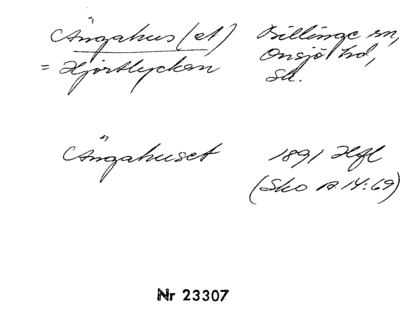 Ängahus(et) Billinge sn,
= Hjortlyckan Onsjö hd,
Sk.
Ängahuset 1891 Hfl
(Sko A 14:69)
Nr 23307